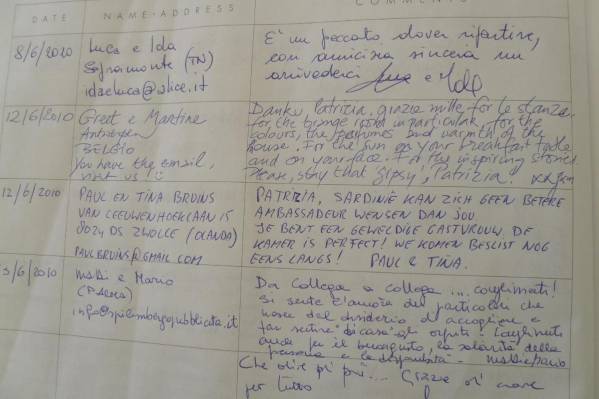 DATE
NAME - ADDRESS
COMMENTS
8/6/2010
Luca e Ida
Sopramonte (TN)
idaeluca@alice.it
E' un peccato dover ripartire,
con amicizia sincera un
arrivederci Luca e Ida
12/6/2010
Greet e Martine
Antwerpen
BELGIO
You have the email,
visit us! ☺
Danke, Patrizia. grazie mille for le stanze.
for the orange in particular, for the
colours, the perfumes and warmth of the
house. For the sun on your breakfast table
and on your face. For the inspiring stones.
Please, stay that gipsy, Patrizia!
12/6/2010
PAUL EN TINA BRUINS
VAN LEEUWENHOEKLAAN 15
ZWOLLE (OLANDA)
PAULBRUINS@GMAIL.COM
PATRIZIA, SARDINIË KAN ZICH GEEN BETERE
AMBASSADEUR WENSEN DAN JOU.
JE BENT EEN GEWELDIGE GASTVROUW. DE
KAMER IS PERFECT! WE KOMEN BESLIST NOG
EENS LANGS! PAUL & TINA.
3/6/2010
e Mario
(PARMA)
Da collega a collega ... complimenti!
Si sente l'amore dei particolari che
nasce dal desiderio di accogliere e
far sentire "di casa" gli ospiti - Complimenti
anche per il buongusto, la solarità della
persona e la disponibilità -
Che dire di più... Grazie di cuore
per tutto